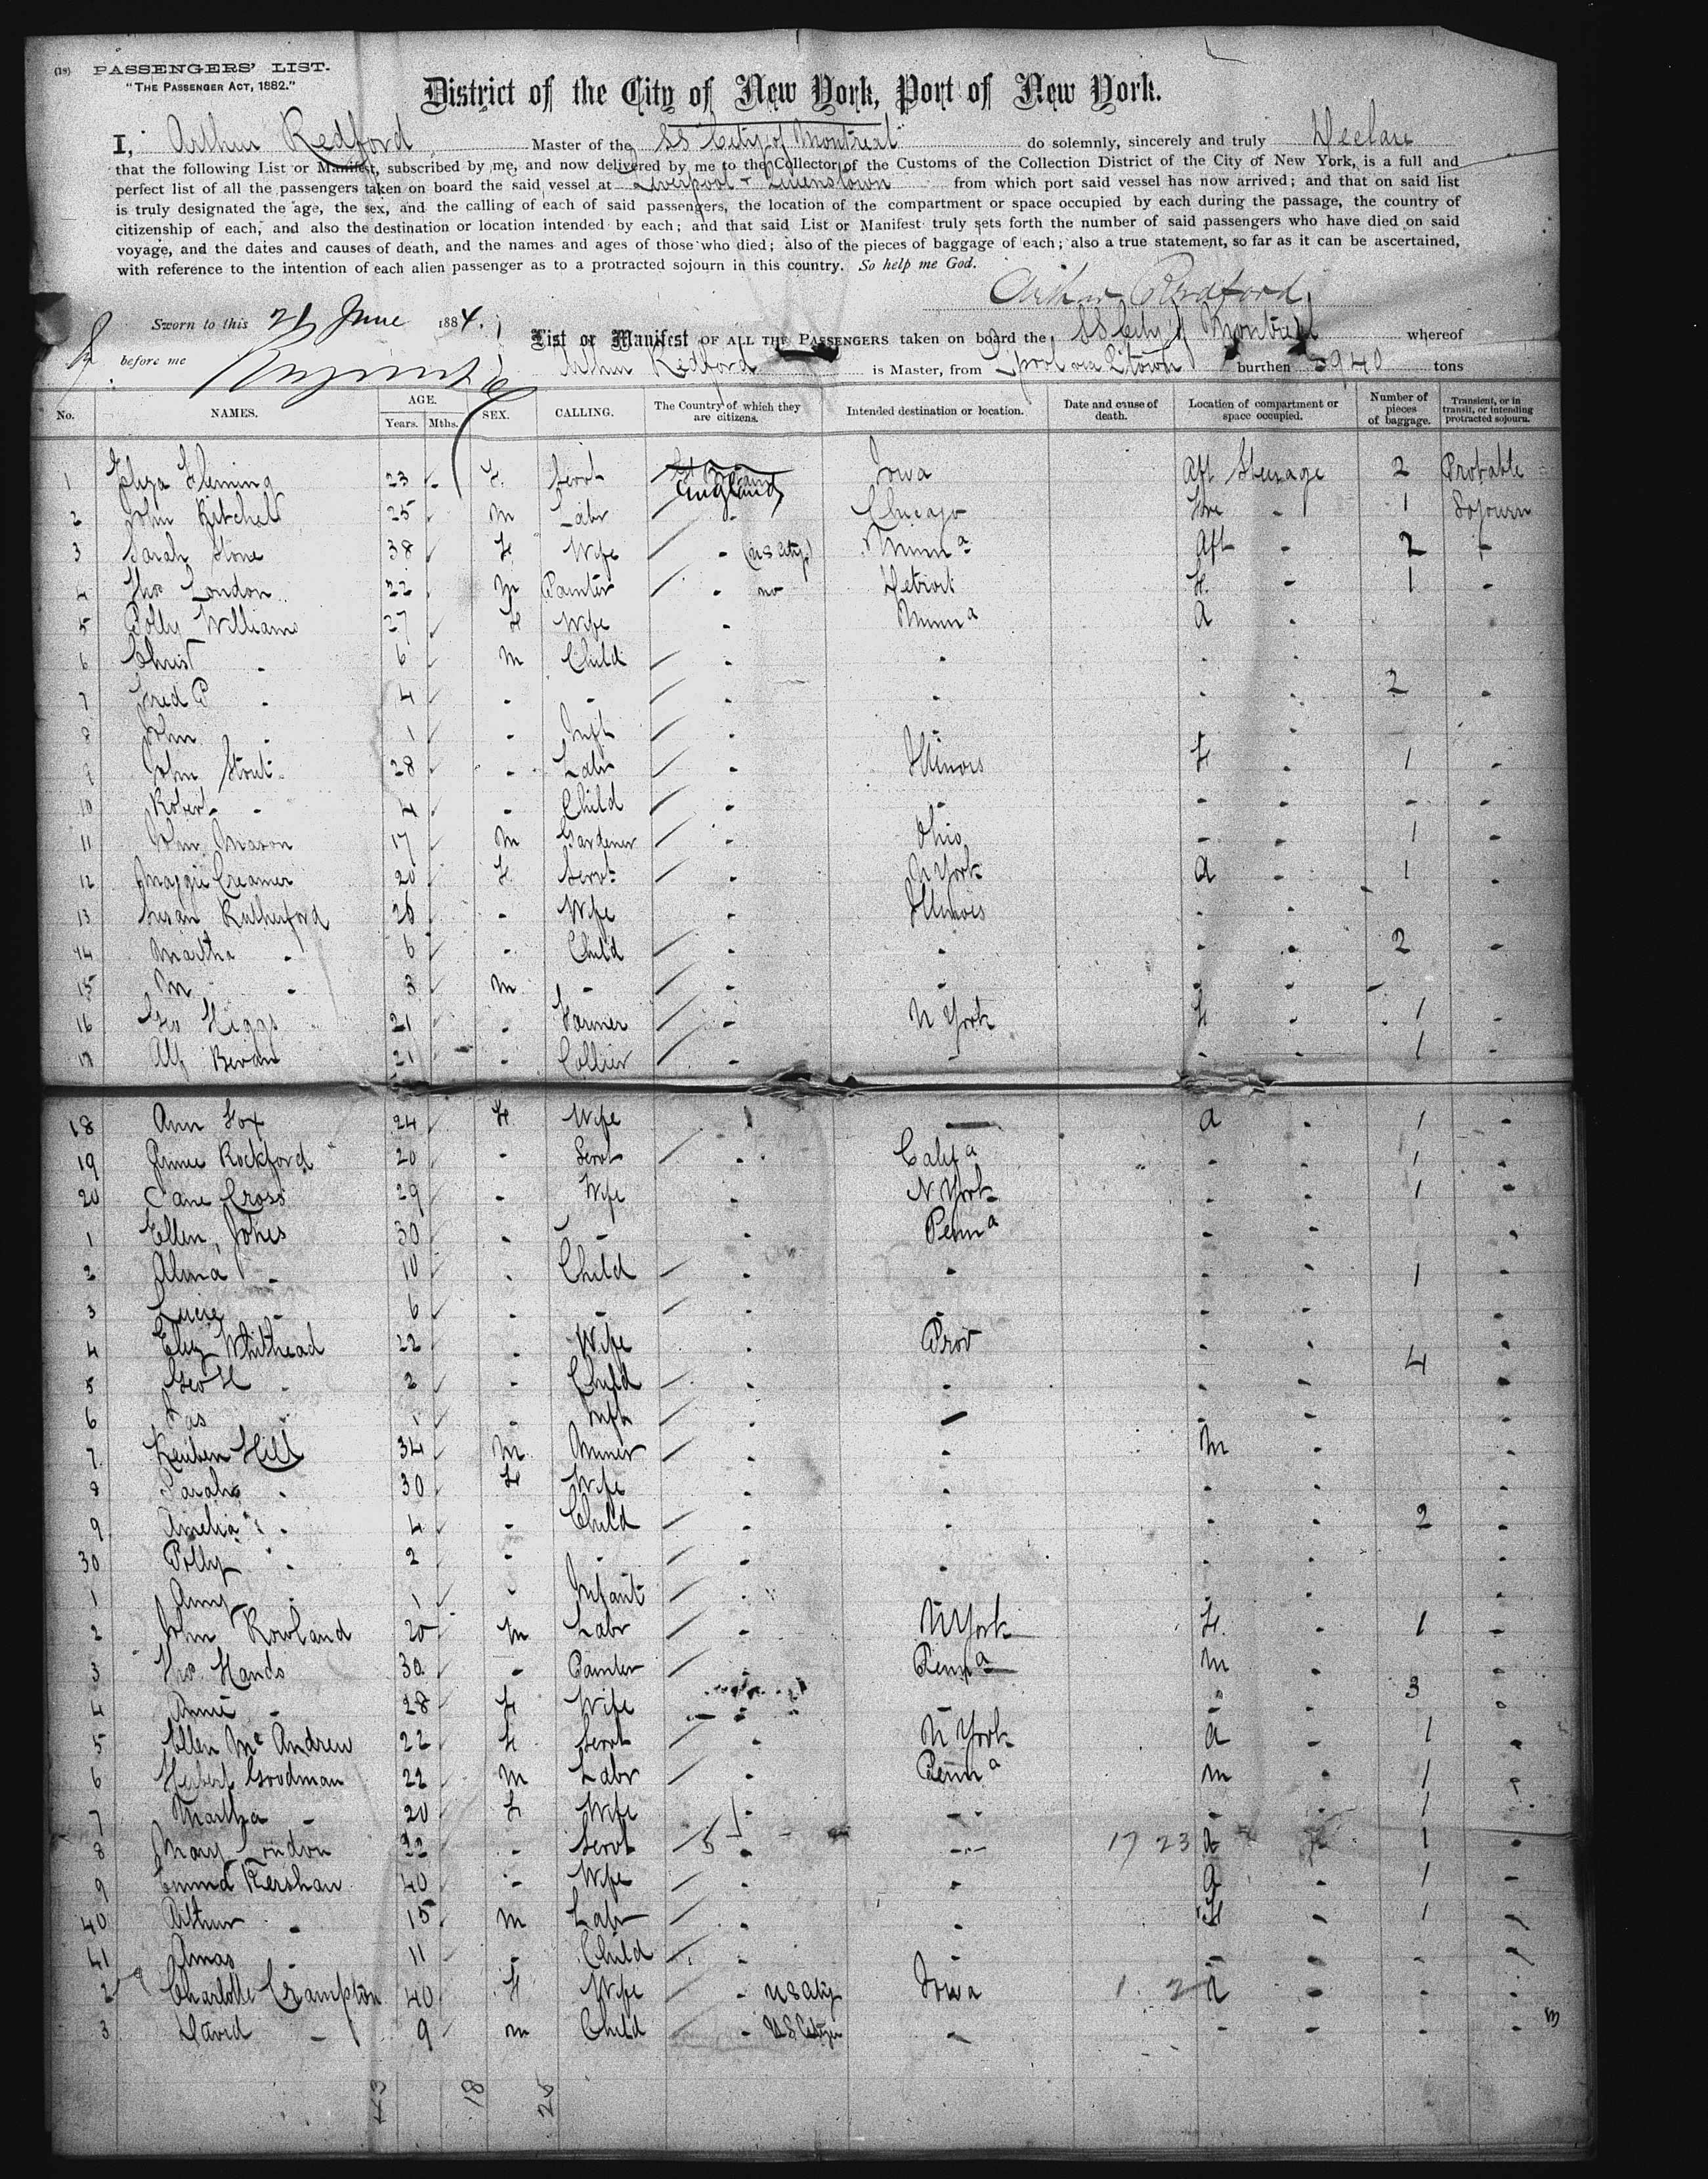 (18) PASSENGERS' LIST.
"THE PASSENGER ACT, 1882."
District of the City of New York, Port of New York.
I, Arthur Redford Master of the SS City of Montreal do solemnly, sincerely and truly Declare
that the following List or Manifest, subscribed by me, and now delivered by me to the Collector of the Customs of the Collection District of the City of New York, is a full and
perfect list of all the passengers taken on board the said vessel at Liverpool & Queenstown from which port said vessel has now arrived; and that on said list
is truly designated the age, the sex, and the calling of each of said passengers, the location of the compartment or space occupied by each during the passage, the country of
citizenship of each, and also the destination or location intended by each; and that said List or Manifest truly sets forth the number of said passengers who have died on said
voyage, and the dates and causes of death, and the names and ages of those who died; also of the pieces of baggage of each; also a true statement, so far as it can be ascertained,
with reference to the intention of each alien passenger as to a protracted sojourn in this country. So help me God.
Arthur Redford
Sworn to this 21 June 1884.
before me
List or Manifest OF ALL THE PASSENGERS taken on board the SS City of Montreal whereof
Arthur Redford is Master, from L'pool via Q'town burthen tons
No. NAMES. AGE. Years. Mths. SEX. CALLING. The Country of which they are citizens. Intended destination or location. Date and cause of death. Location of compartment or space occupied. Number of pieces of baggage. Transient, or in transit, or intending protracted sojourn.
1 Eliza Fleming 23 F. Servt England Iowa Aft Steerage 2 Probable
2 John Kitchell 25 M Labr - Chicago Fore - 1 Sojourn
3 Sarah Stone 38 F. Wife - Aft - 2 -
4 Thos London 22 M Painter - no Detroit F. - 1 -
5 Polly Williams 27 F Wife - A -
6 Christ - 6 M Child - - - -
7 Fred P - 4 - - - - - - 2 -
8 John - 1 - Inft - - - -
9 John Stout 28 - Labr - Illinois F - 1 -
10 Robert - 4 - Child - - - - - -
11 John Mason 17 M Gardener - Ohio - - 1 -
12 Maggie Creamer 20 F Servt - N York A - 1 -
13 Susan Rutherford 26 - Wife - Illinois - -
14 Martha - 6 - Child - - - - 2 -
15 M - 3 M - - - - - -
16 Geo Higgs 21 - Farmer - N York F - 1 -
17 Alf Bevan 21 - Collier - - - - 1 -
18 Ann Fox 24 F Wife — A - 1 -
19 Annie Rockford 20 - Servt - Calif a - - 1 -
20 Jane Cross 29 - Wife - N York - - 1 -
1 Ellen Jones 30 - - - Penn a - - -
2 Alma - 10 - Child - - - - 1 -
3 Lucie - 6 - - - - - - -
4 Eliz Whithead 22 - Wife - Prov - - 4 -
5 Geo H - 2 - Child - - - - -
6 Jas - 1 - Inft - — - - -
7 Reuben Hill 34 M. Miner - - M -
8 Sarah - 30 F Wife - - - - -
9 Amelia - 4 - Child - - - - 2 -
30 Polly - 2 - - - - - - -
1 Amy - 1 - Infant - - - -
2 John Rowland 20 M Labr - N York F. - 1 -
3 Thos. Hands 30 - Painter - Penn a M - -
4 Annie - 28 F Wife - - - - 3 -
5 Ellen McAndrew 22 F Servt - N York A - 1 -
6 Herbert Goodman 22 M Labr - Penn a M - 1 -
7 Martha - 20 F Wife - - - - 1 -
8 Mary London 22 - Servt 5 - - 17 23 A - 1 -
9 Emma Kershaw 40 - Wife - - A - 1 -
40 Arthur - 15 M Labr - - F - 1 -
41 Amas - 11 - Child - - - - - -
2 Charlotte Crampton 40 F Wife - Iowa 1 2 A - - -
3 David - 9 M Child - U.S. Citizen - - - - -
43 18 25